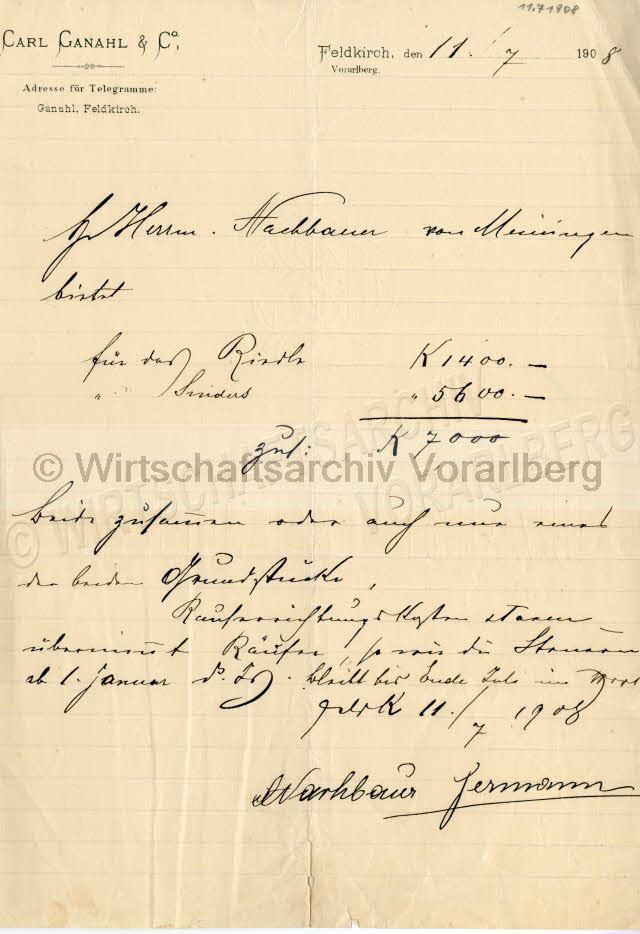 11.7.1908
CARL GANAHL & Co.,
Feldkirch, den 11./7 1908
Vorarlberg.
Adresse für Telegramme:
Ganahl, Feldkirch.
Herrn. Nachbauer von Meiningen
bietet
für das Riedle K 1400.—
" " 5600.—
zus: K 7000
© Wirtschaftsarchiv Vorarlberg
beide zusammen oder auch nur eines
der beiden Grundstücke,
übernimmt Käufer, so wie die Steuern
ab 1. Januar ds. Js. bleibt bis Ende Juli im Wort
Feldk 11./7 1908
Nachbaur Hermann